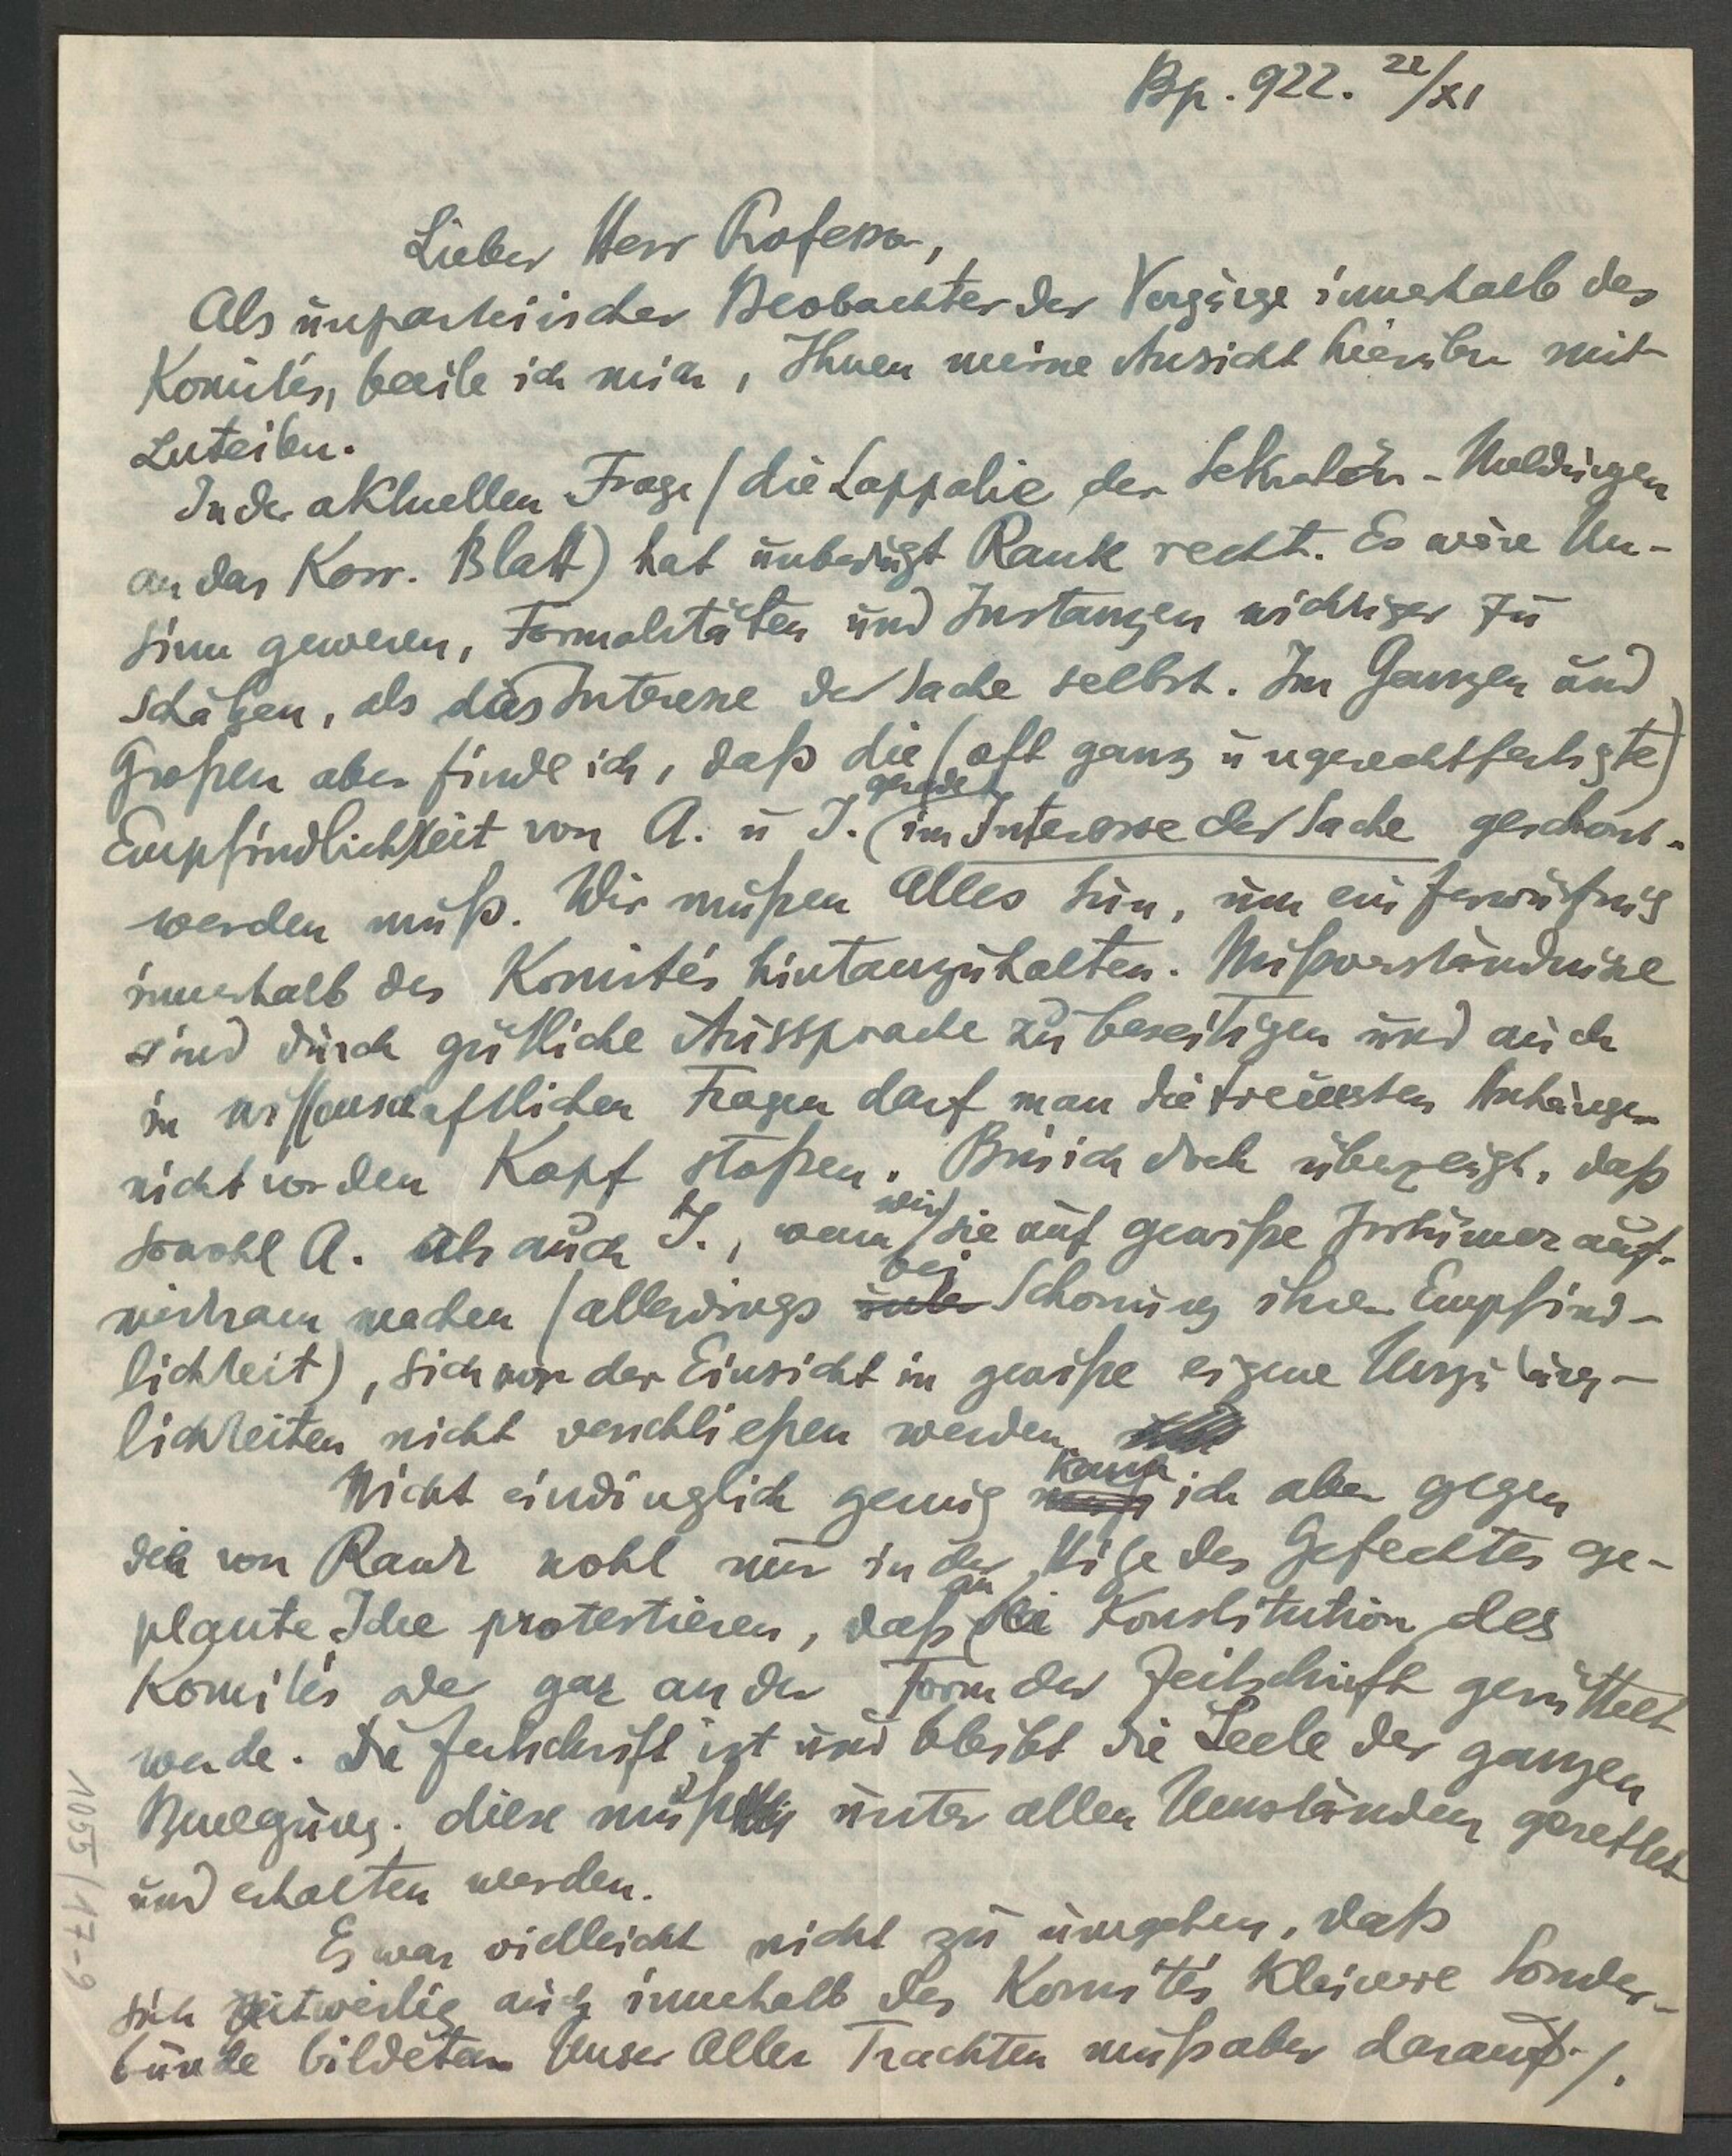 Bp. 922. 22/XI
Lieber Herr Professor,
Als unparteiischer Beobachter der Vorgänge innerhalb des
Komités, beeile ich mich, Ihnen meine Ansicht hierüber mit-
zuteilen.
In der aktuellen Frage (die Lappalie der Sekretär-Meldungen
an das Korr. Blatt) hat unbedingt Rank recht. Es wäre Un-
sinn gewesen, Formalitäten und Instanzen wichtiger zu
schätzen, als das Interesse der Sache selbst. Im Ganzen und
Großen aber finde ich, daß die (oft ganz ungerechtfertigte)
Empfindlichkeit von A. u J. gerade im Interesse der Sache geschont
werden muß. Wir mußen Alles tun, um ein Zerwürfnis
innerhalb des Komités hintanzuhalten. Mißverständnisse
sind durch gütliche Aussprache zu beseitigen und auch
in wissenschaftlichen Fragen darf man die treuesten Anhänger
nicht vor den Kopf stoßen. Bin ich doch überzeugt, daß
sowohl A. als auch J., wenn wir sie auf gewiße Irrtümer auf-
merksam machen (allerdings bei Schonung ihrer Empfind-
lichkeit), sich vor der Einsicht in gewiße eigene Unzuläng-
lichkeiten nicht verschließen werden.
Nicht eindinglich genug kann ich aber gegen
die von Rank wohl nur in der Hitze des Gefechtes ge-
plante Idee protestieren, daß an der Konstitution des
Komités oder gar an der Form der Zeitschrift gerüttelt
werde. Die Zeitschrift ist und bleibt die Seele der ganzen
Bewegung; diese muß unter allen Umständen gerettet
und erhalten werden.
Es war vielleicht nicht zu umgehen, daß
sich zeitweilig auch innerhalb des Komités kleinere Sonder-
bünde bildeten. Unser Aller Trachten muß aber darauf ./.
1055/17-9